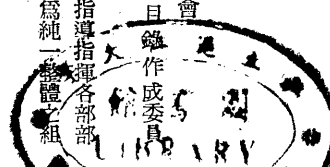 會
目錄作成委員
指導指揮各部部
爲純一整體之組
LIBRARY